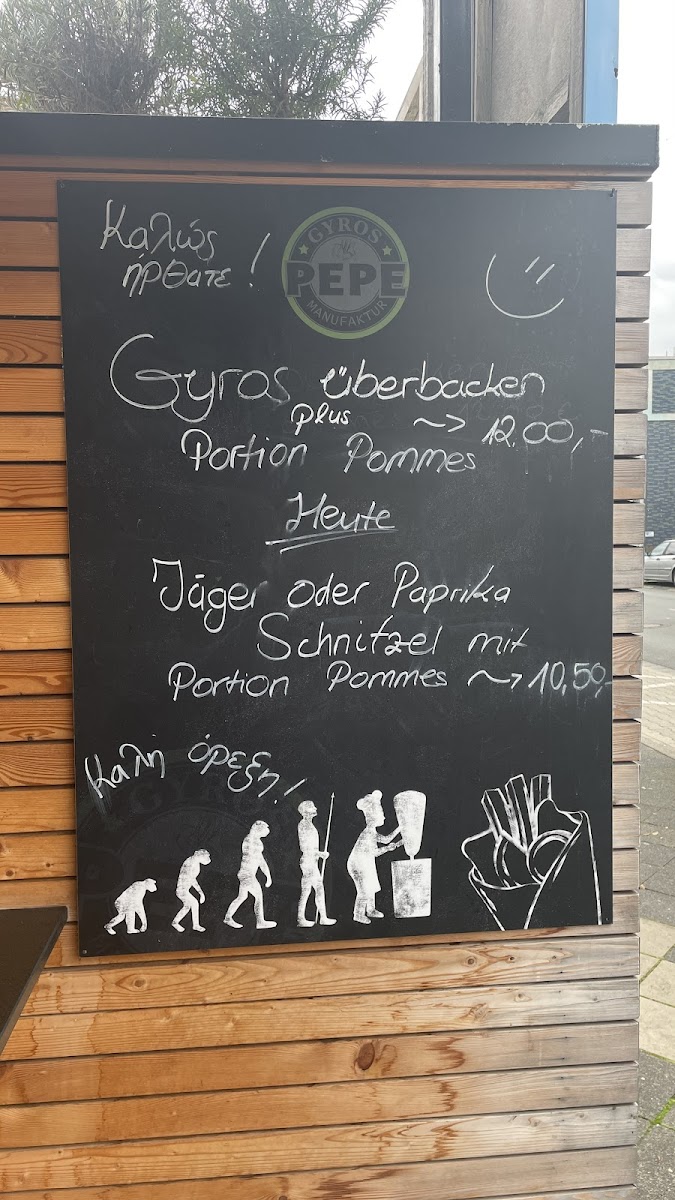 Καλώς
ήρθατε!
GYROS
PEPE
MANUFAKTUR
Gyros überbacken
plus ~> 12,00,-
Portion Pommes
Heute
Jäger oder Paprika
Schnitzel mit
Portion Pommes ~> 10,50,-
Καλή όρεξη!